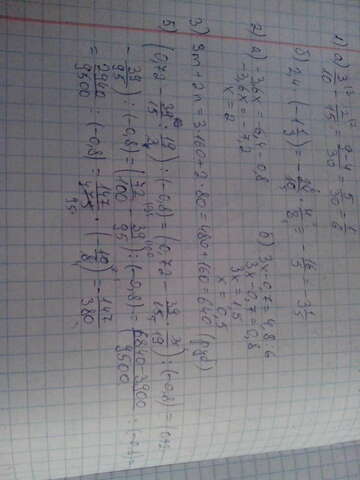 1) а) 3/10 - 2/15 = 9-4/30 = 5/30 = 1/6
б) 2,4 · (-1 1/3) = - 24/10 · 4/3 = - 16/5 = 3 1/5
2) а) -3,6x = -6,4 - 0,8
-3,6x = -7,2
x = 2
б) 3x - 0,7 = 4,8 : 6
3x - 0,7 = 0,8
3x = 1,5
x = 0,5
3) 3m + 2n = 3·160 + 2·80 = 480 + 160 = 640 (руб)
5) (0,72 - 39/15 : 19/4) : (-0,8) = (0,72 - 39/15 · 4/19) : (-0,8) =
- 39/95) : (-0,8) = (72/100 - 39/95) : (-0,8) = (6840-3900/9500) : (-0,8) =
= 2940/9500 : (-0,8) = 147/475 · (- 10/8) = - 147/380